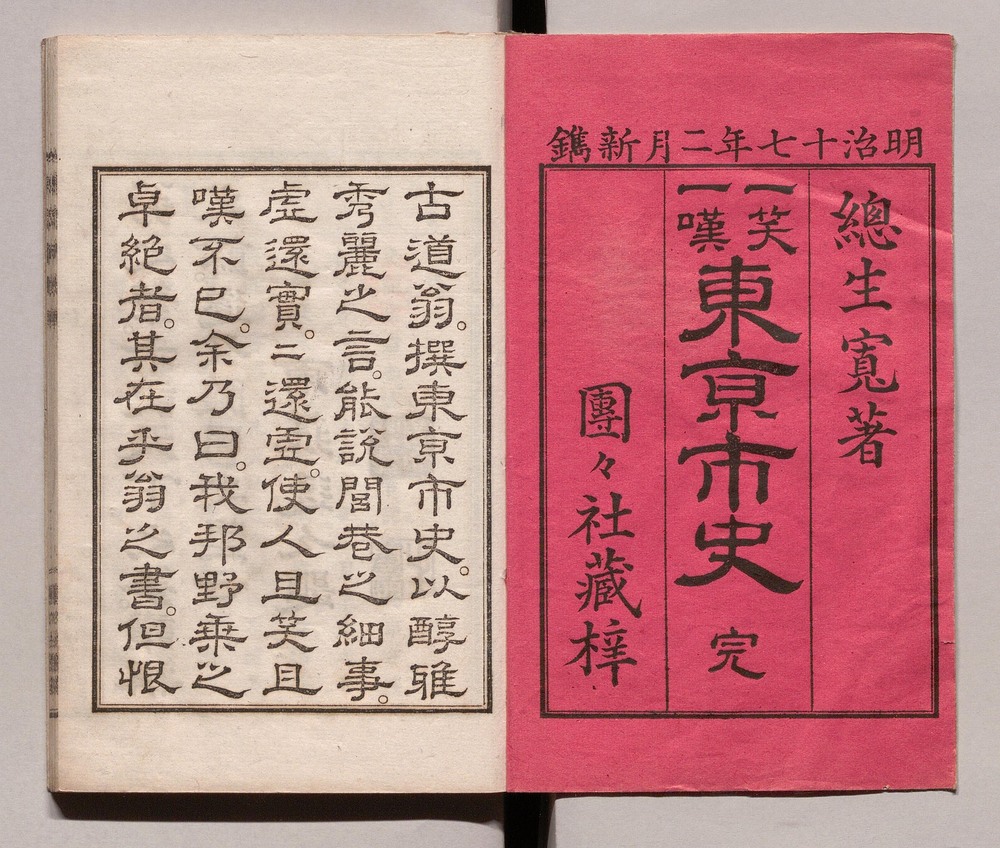 明治十七年二月新鐫
總生寬著
一笑
一嘆
東京市史 完
團々社藏梓
古道翁。撰東京市史。以醇雅
秀麗之言。能說閭巷之細事。
虛還實。二還虛。使人且笑且
嘆不已。余乃曰。我邦野乘之
卓絕者。其在乎翁之書。但恨